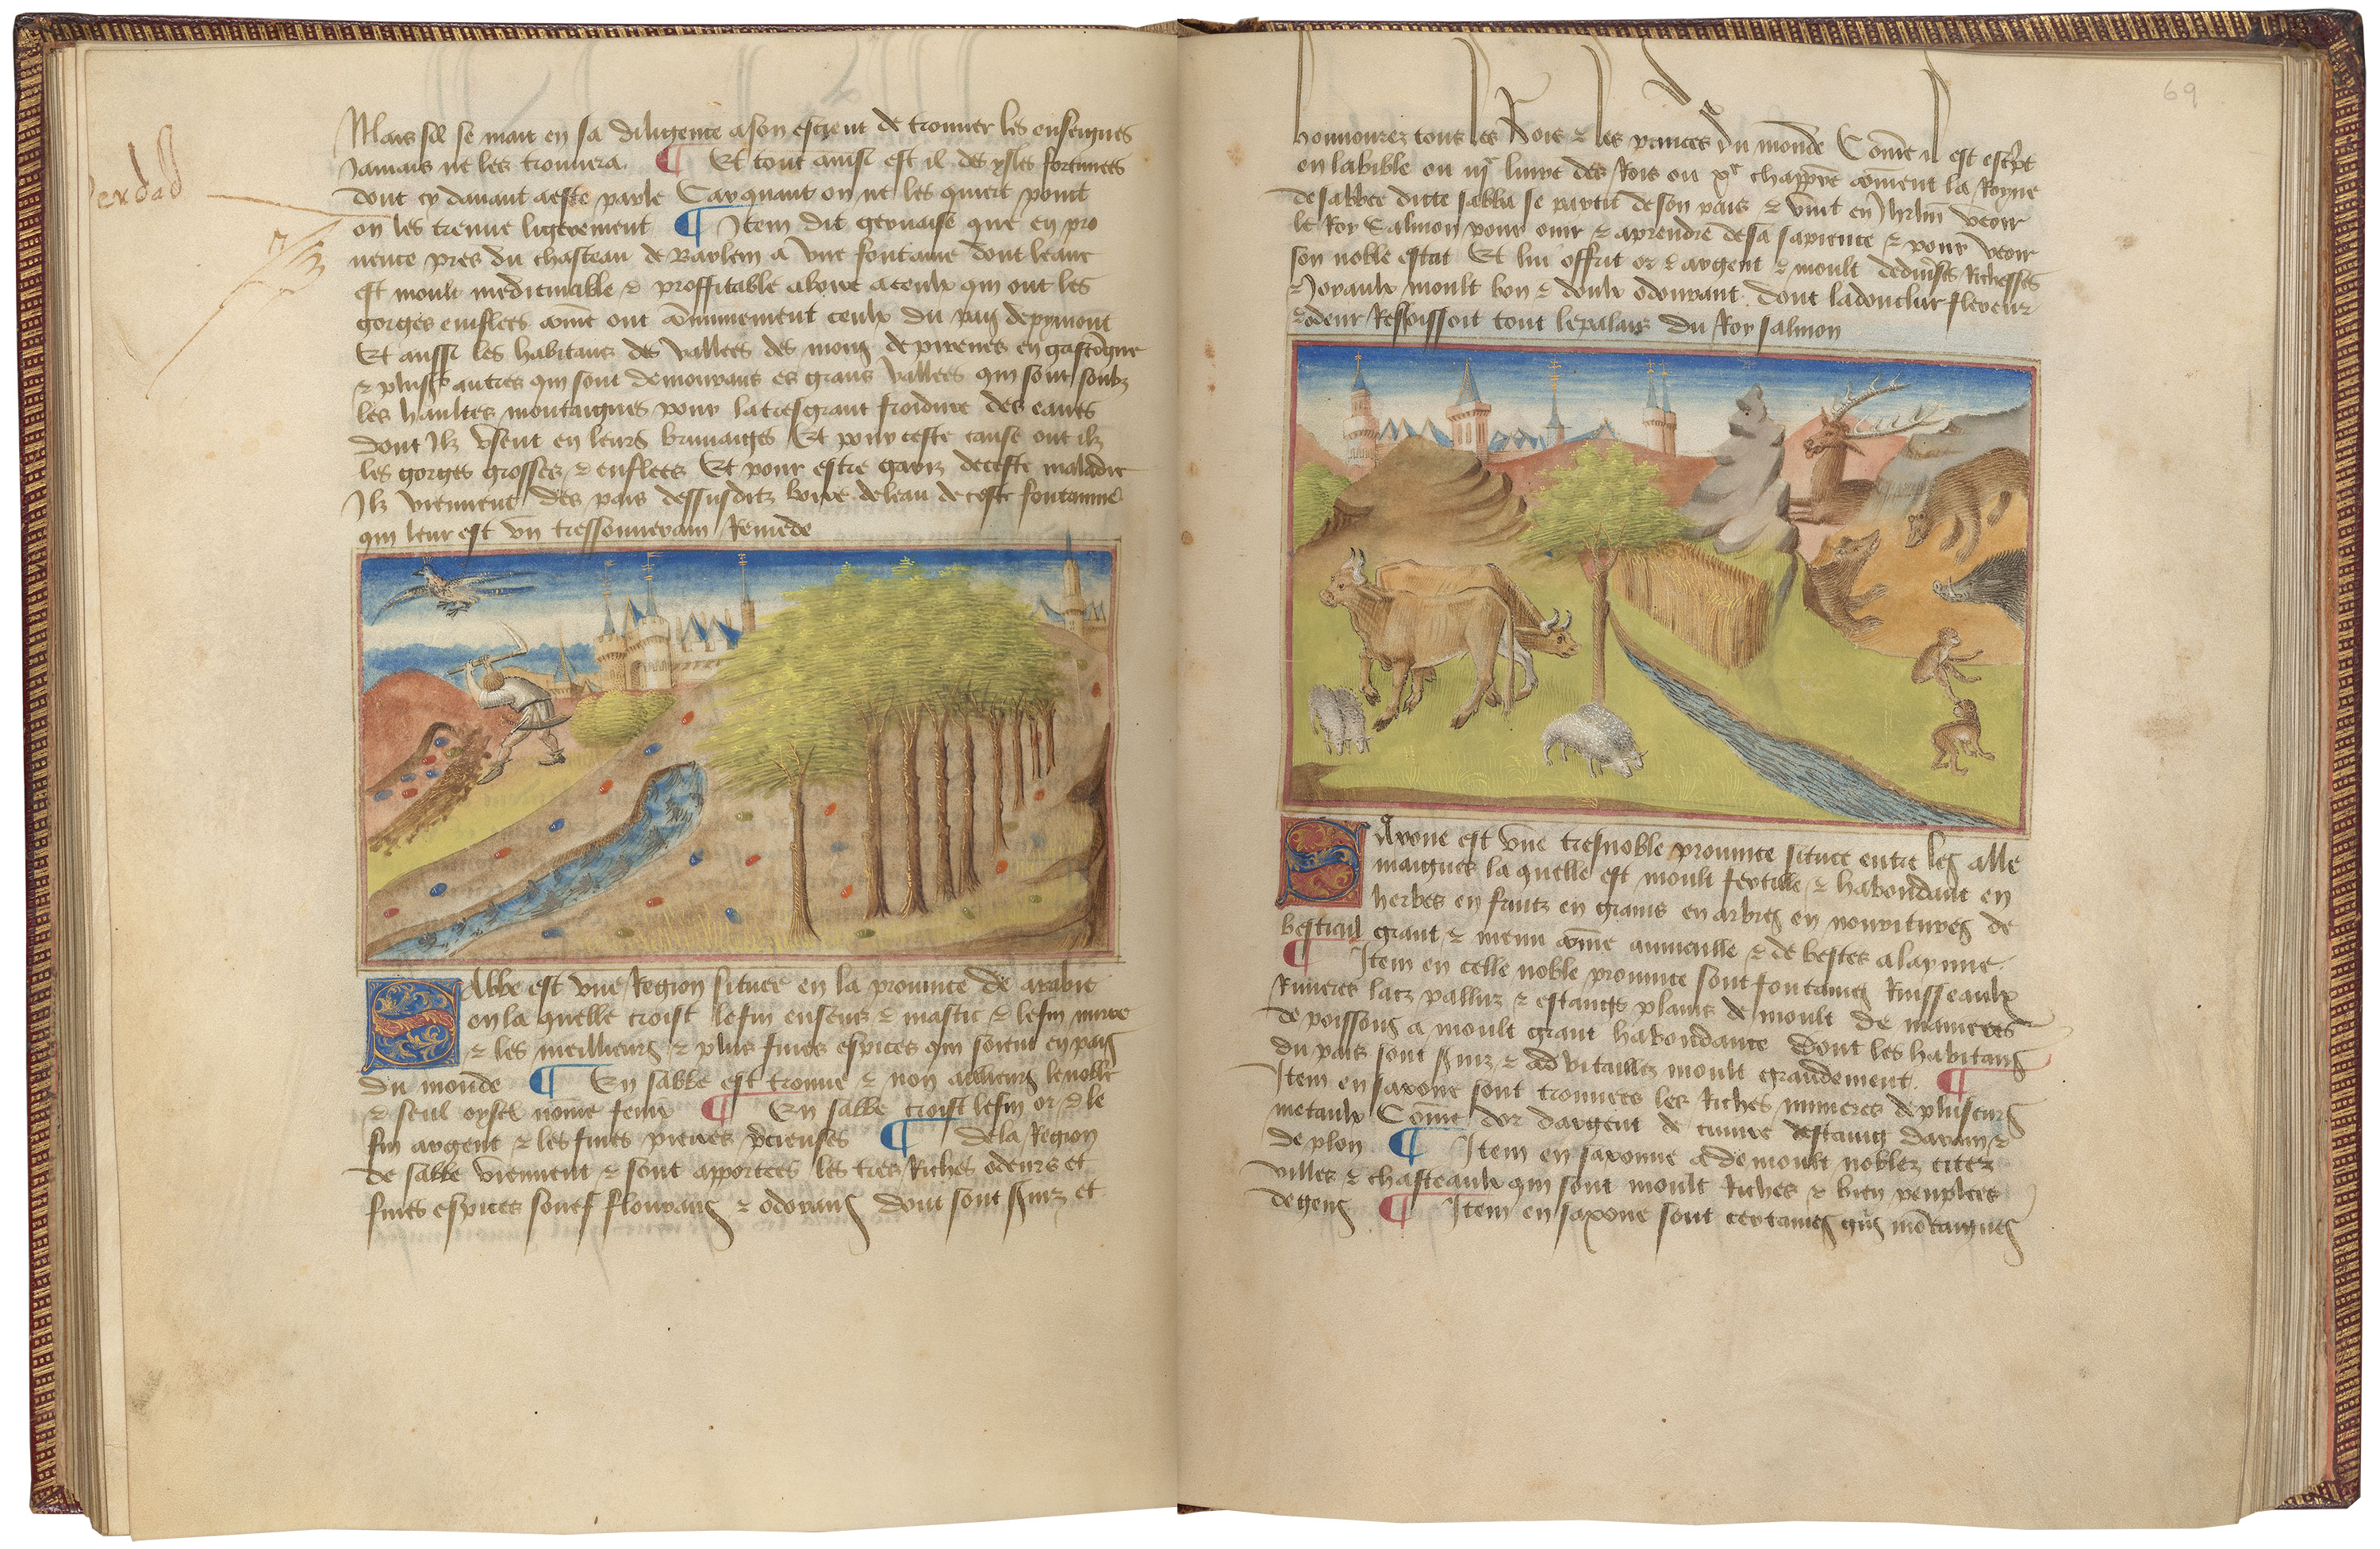 Mais sil se mait en sa diligence a son escient de trouuer les enseignes
Jamais ne les trouuera ¶ Et tout ainsi est il des ysles fortunees
dont cy dauant a este parle Car quant on ne les quiert point
on les treuue ligerement ¶ Item dit geruaise que en pro
uence pres du chasteau de Barlem a vne fontaine dont leaue
est moult medicinable & proffitable a boire a ceulx qui ont les
gorges enflees cōme ont cōmunement ceulx du pays de pymont
Et aussi les habitans des vallees des mons de pirenes en gascōgne
& plusrs autres qui sont demourans es grans vallees qui sont soubz
les haultes montaignes pour la tresgrant froidure des eaues
dont Ilz vsent en leurs bruuaiges Et pour ceste cause ont ilz
les gorges grosses & enflees Et pour estre gariz de ceste maladie
Ilz viennent des pais dessusditz boire de leau de ceste fontainne
qui leur est vn tressouuerain Remede
Verdad
SAbbe est vne Region situee en la prouince de arabie
en la quelle croist le fin ensens & mastic & le fin mirre
& les meilleurs & plus fines espices qui soient en pays
du monde ¶ En sabbe est trouue & non ailleurs le noble
& seul oysel nōme fenix ¶ En sabbe croist le fin or & le
fin argent & les fines pierres p̄cieuses ¶ De la Region
de sabbe viennent & sont apportees les tres Riches odeurs et
fines espices souef flourans & odorans dont sont s̄uiz et
69
honnourez tous les Rois & les princes du monde Cōme il est escript
en la bible ou iije liure des Rois ou xe chappitre cōment la Royne
de sabbee ditte sabba se partit de son pais & vint en Jhrlm veoir
le Roy Salmon pour ouir & aprendre de sa sapience & pour veoir
son noble estat Et lui offrit or & argent & moult de diuerses Richesses
Joyaulx moult bon & doulx odourant dont la doulceur fleueur
& odeur Resioissoit tout le palais du Roy salmon
SAxone est vne tresnoble prouince situee entre les alle
maignes la quelle est moult fertille & habondant en
herbes en fruitz en grains en arbres en nourritures de
bestiail grant & menu cōme aumaille & de bestes a laynne
¶ Item en celle noble prouince sont fontaines Ruisseaulx
Riuieres lacz palluz & estangs plains de moult de manieres
de poissons a moult grant habondance Dont les habitans
du pais sont s̄uiz & aduitaillez moult grandement ¶
Item en saxone sont trouuees les Riches minieres de pluseurs
metaulx Cōme dor dargent de cuiure destaing darain &
de plon ¶ Item en saxonne a de moult nobles citez
villes & chasteaulx qui sont moult Riches & bien peuplees
de gens ¶ Item en saxone sont certaines gr̄as mōtaignes